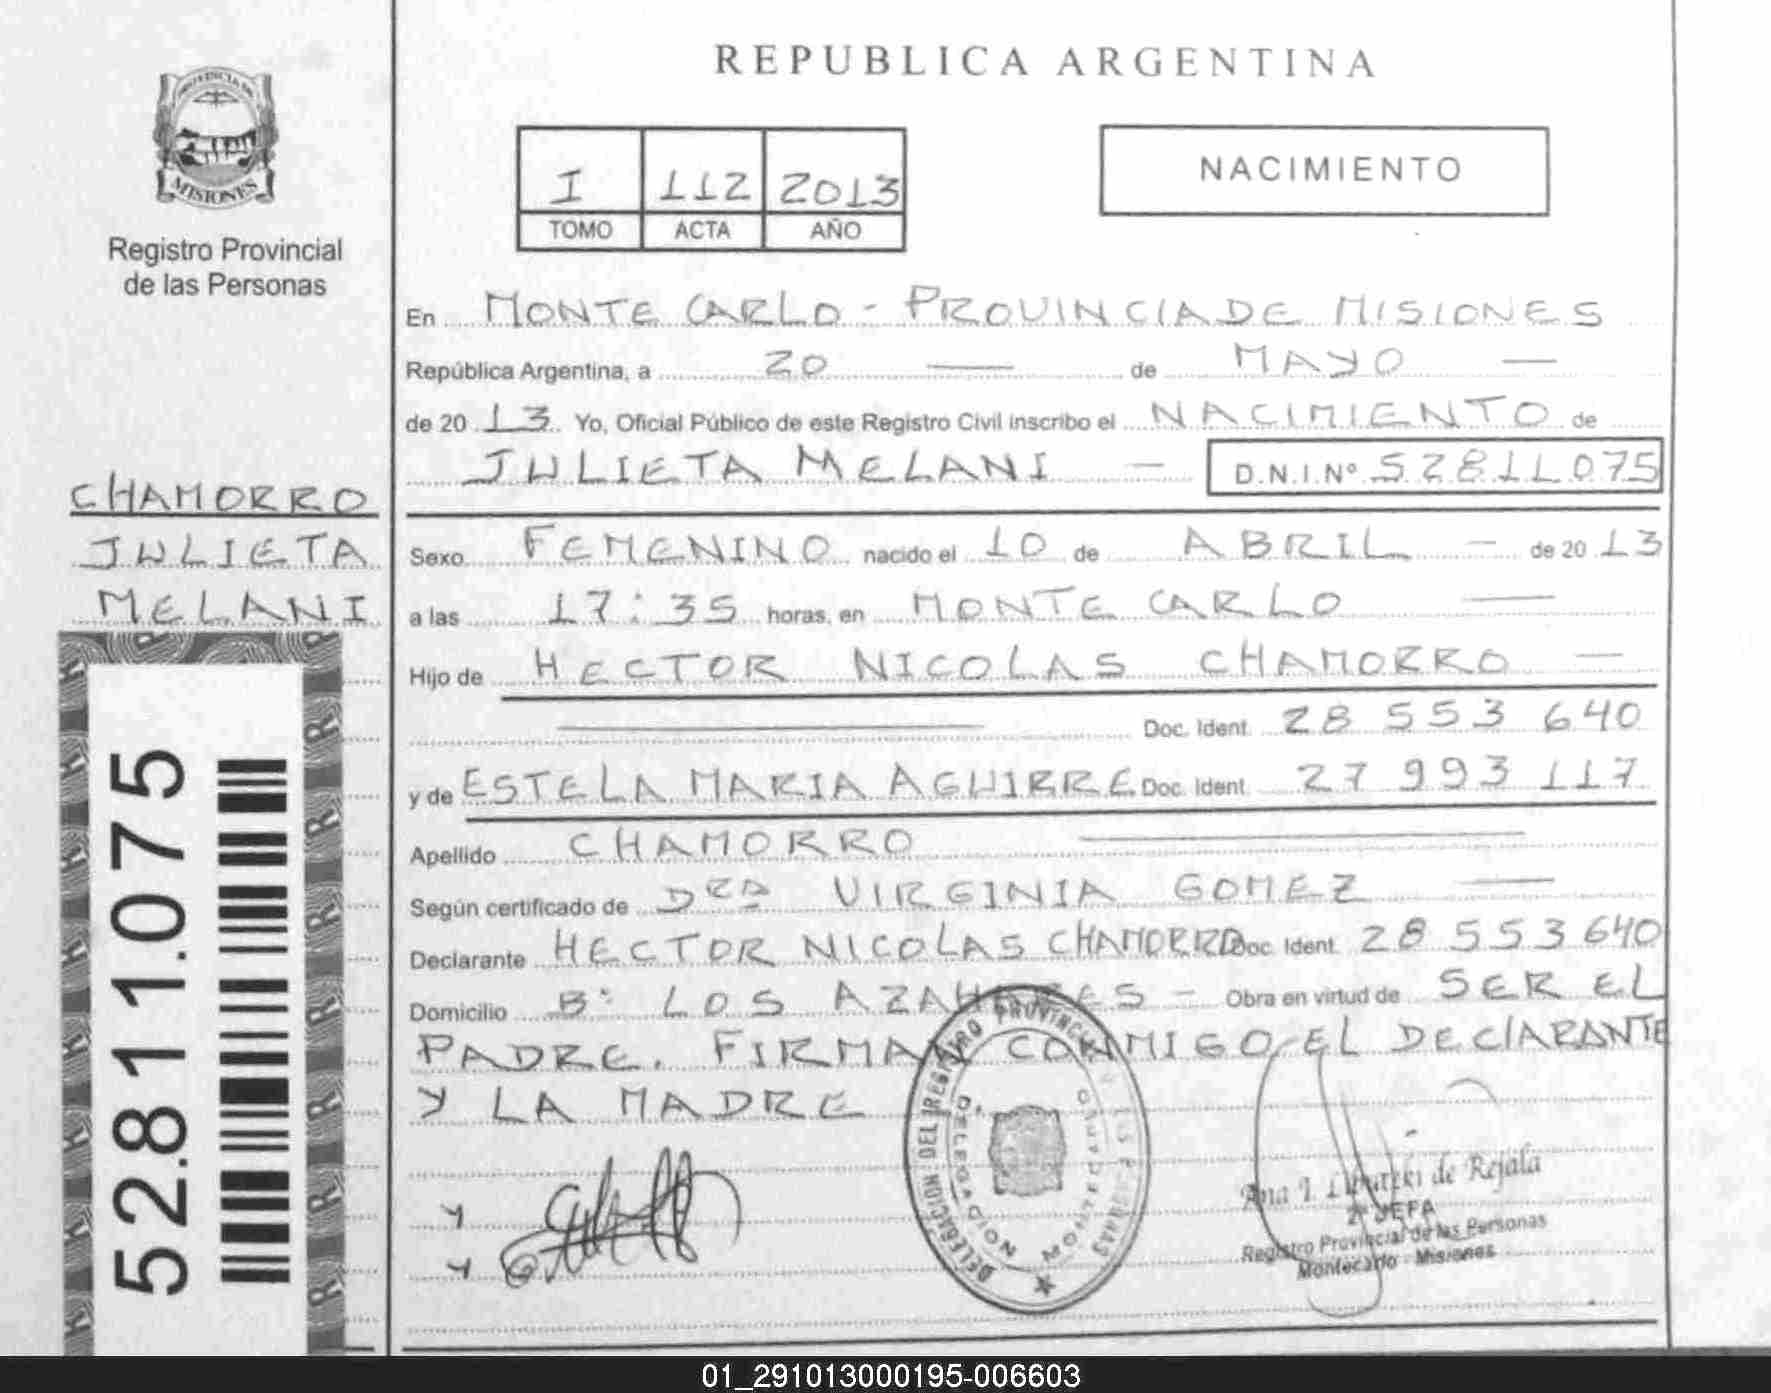 REPUBLICA ARGENTINA
PROVINCIA DE
MISIONES
Registro Provincial
de las Personas
I 112 2013
TOMO ACTA AÑO
NACIMIENTO
En MONTE CARLO - PROVINCIA DE MISIONES
República Argentina, a 20 — de MAYO —
de 20 13 Yo, Oficial Público de este Registro Civil inscribo el NACIMIENTO de
JULIETA MELANI — D.N.I.Nº 52811075
CHAMORRO
JULIETA
MELANI
Sexo FEMENINO nacido el 10 de ABRIL — de 20 13
a las 17:35 horas, en MONTE CARLO —
Hijo de HECTOR NICOLAS CHAMORRO —
Doc. Ident. 28 553 640
y de ESTELA MARIA AGUIRRE Doc. Ident. 27 993 117
Apellido CHAMORRO
Según certificado de DRA VIRGINIA GOMEZ —
Declarante HECTOR NICOLAS CHAMORRO Doc. Ident. 28 553 640
Domicilio Bº LOS AZAHARES - Obra en virtud de SER EL
PADRE. FIRMAN CONMIGO EL DECLARANTE
Y LA MADRE
52.811.075
DELEGACION DEL REGISTRO PROVINCIAL DE LAS PERSONAS
Ana I. de Rejala
2º JEFA
Registro Provincial de las Personas
Montecarlo - Misiones
01_291013000195-006603